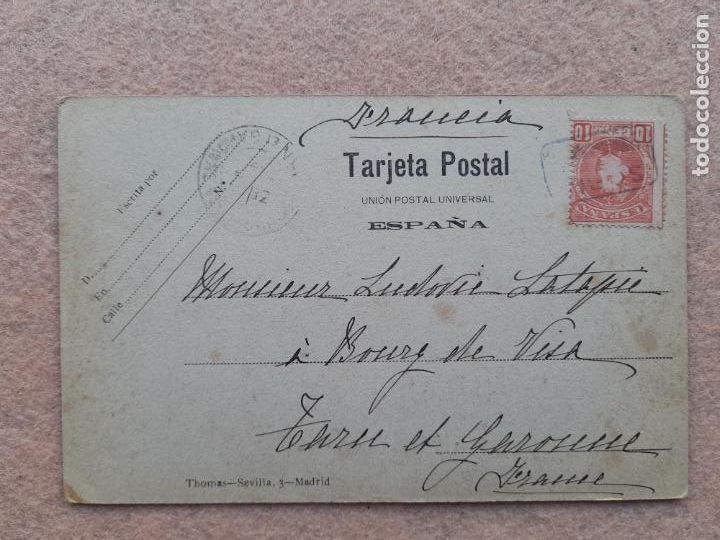 Francia
Tarjeta Postal
UNIÓN POSTAL UNIVERSAL
ESPAÑA
Escrita por
D.
En
Calle
N.º
10 10
ESPAÑA
Monsieur Ludovic Latapie
à Bourg de Visa
Tarn et Garonne
France
Thomas—Sevilla, 3—Madrid
todocoleccion